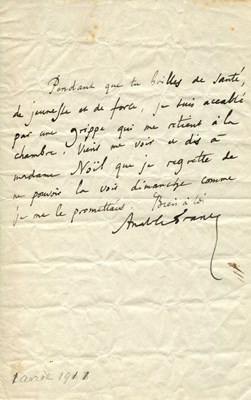 Pendant que tu brilles de santé,
de jeunesse et de force, je suis accablé
par une grippe qui me retient à la
chambre. Viens me voir et dis à
madame Noël que je regrette de
ne pouvoir la voir dimanche comme
je me le promettais. Bien à toi
Anatole France
1 avril 1911